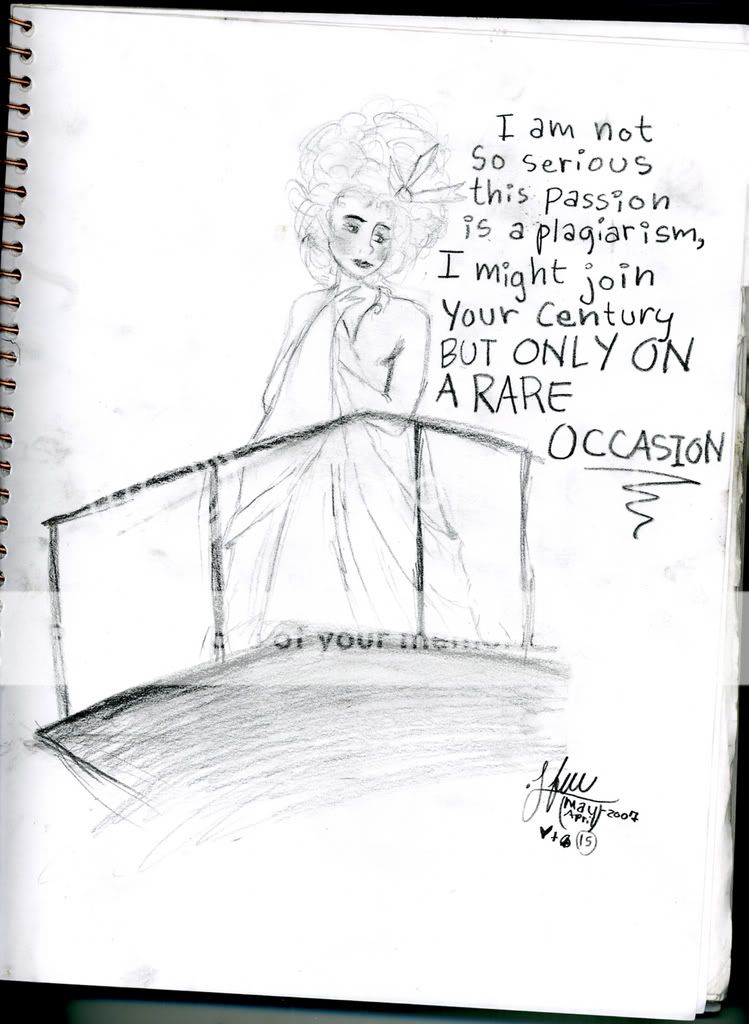 I am not
so serious
this passion
is a plagiarism,
I might join
Your Century
BUT ONLY ON
A RARE
OCCASION
of your
May
April 2007
15